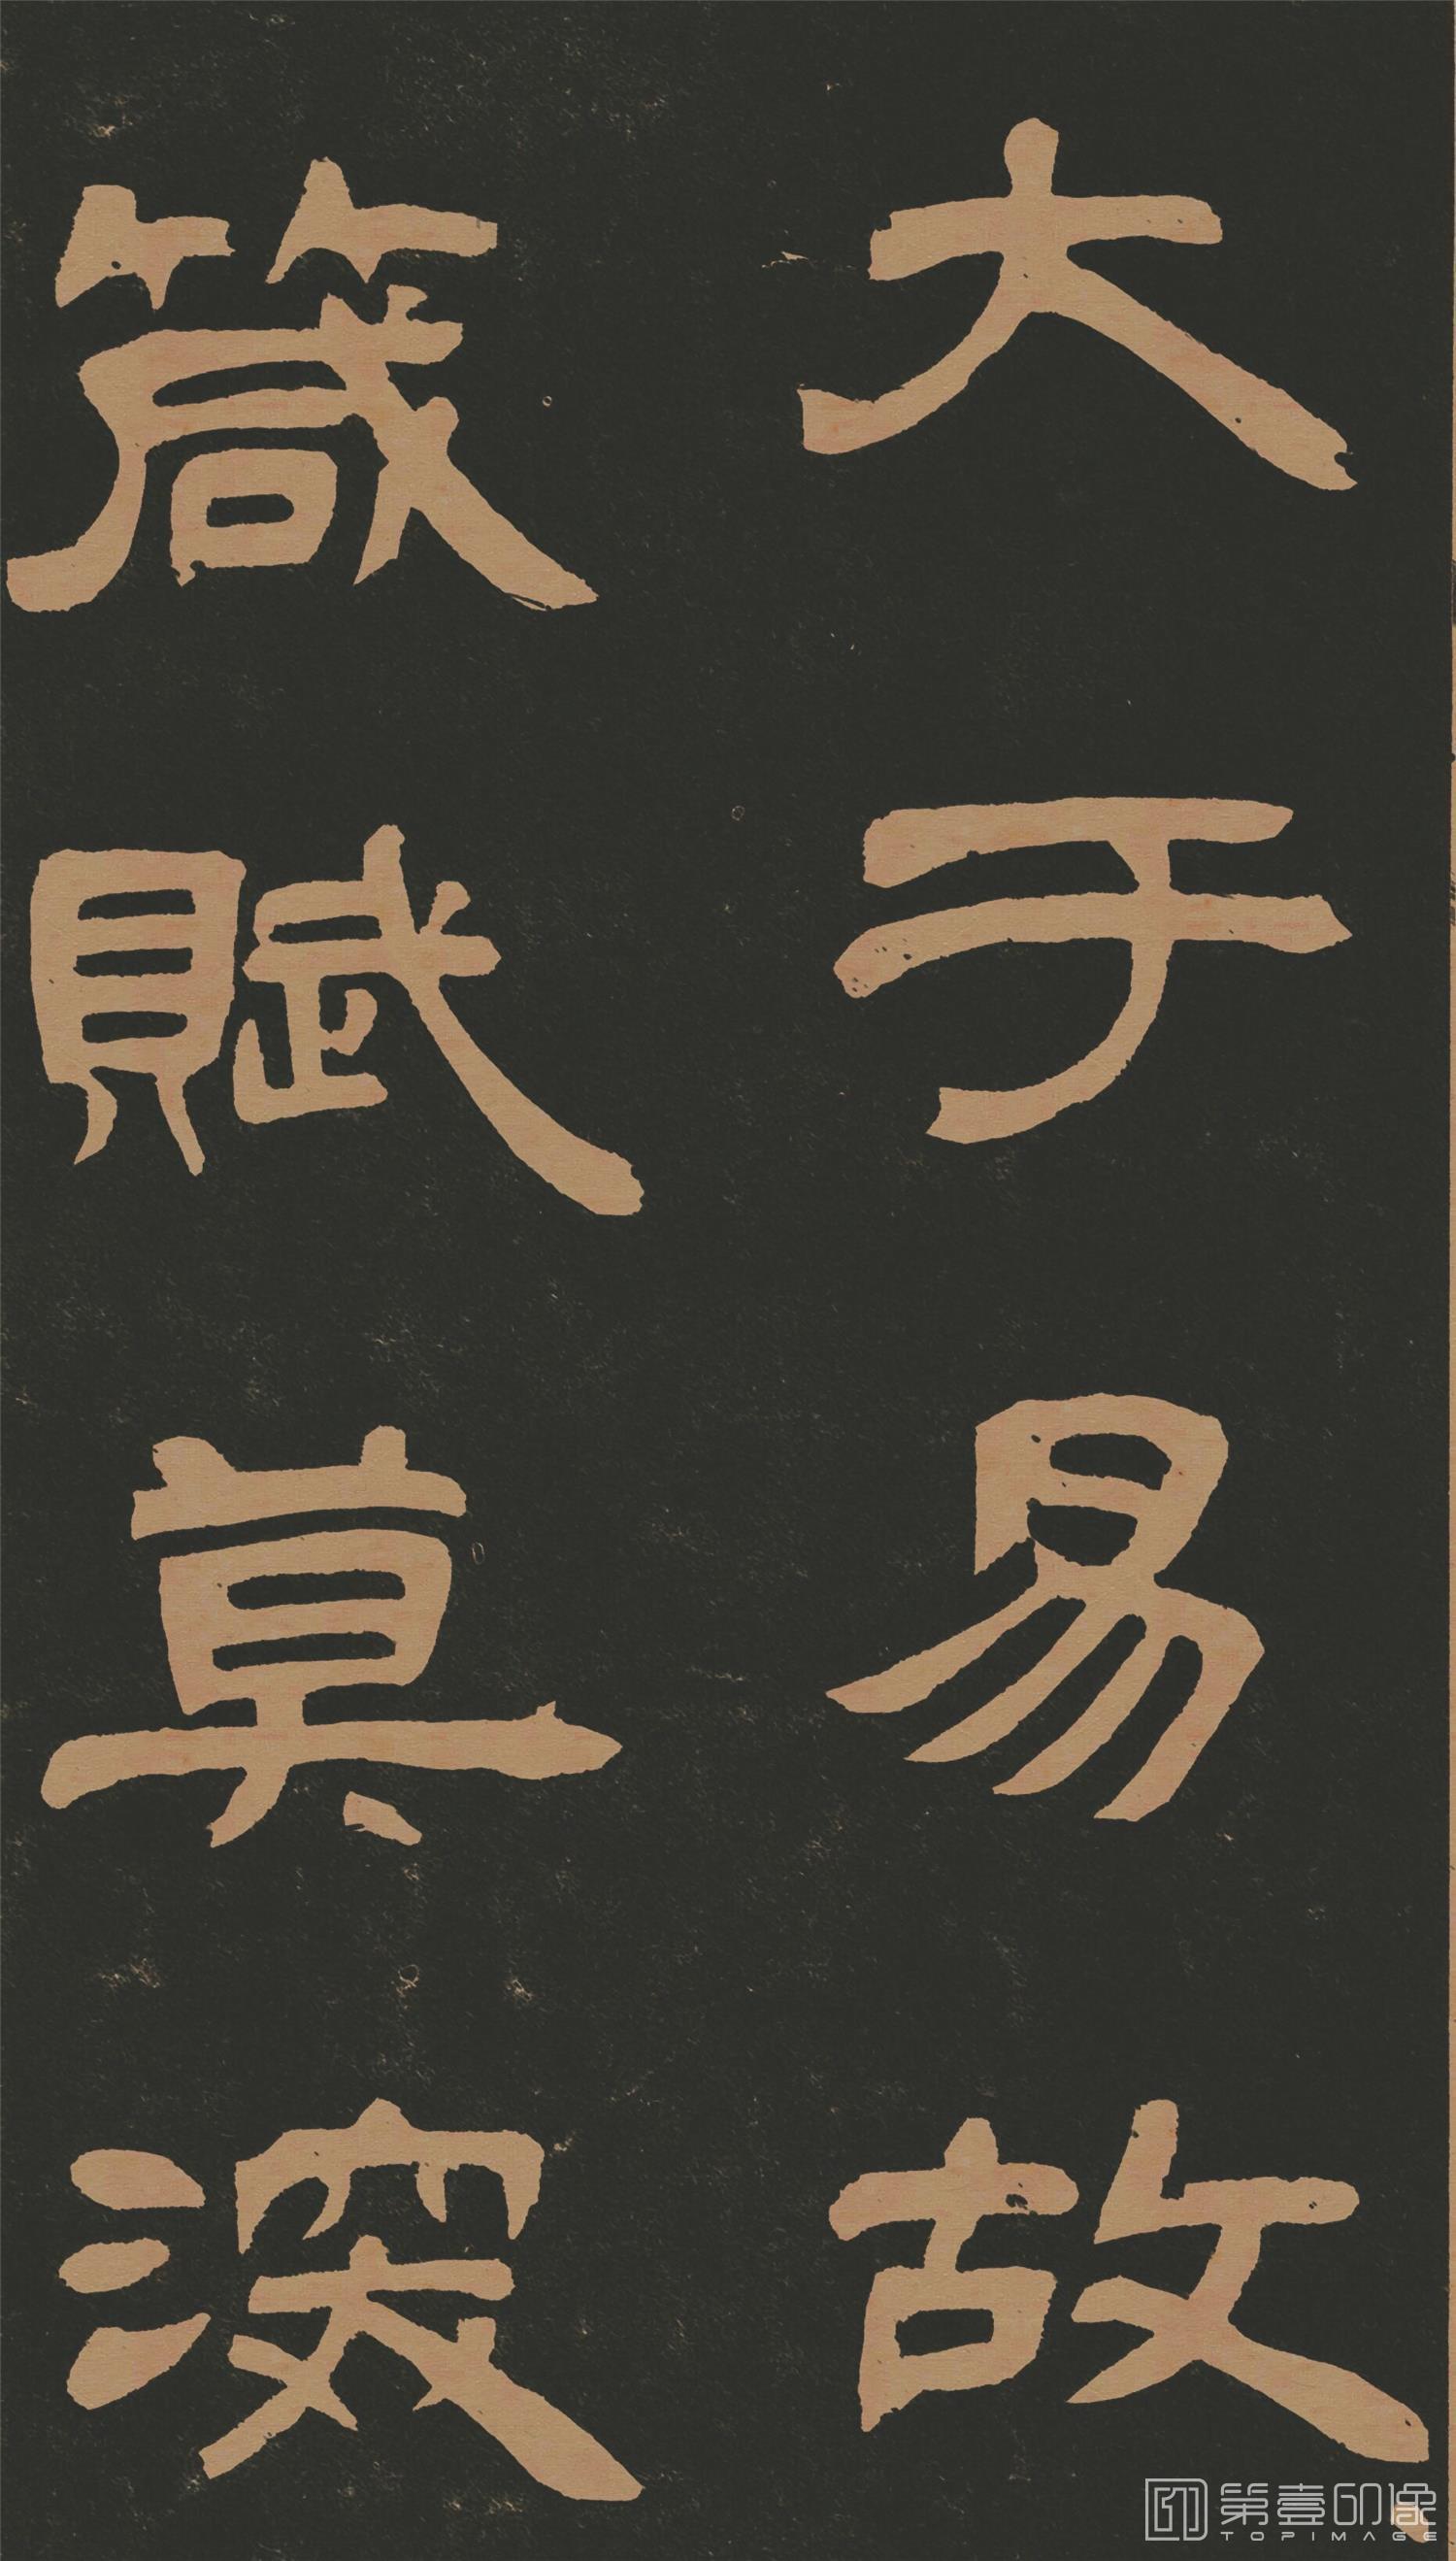 大于易故
箴賦莫深
第壹印像
TOPIMAGE